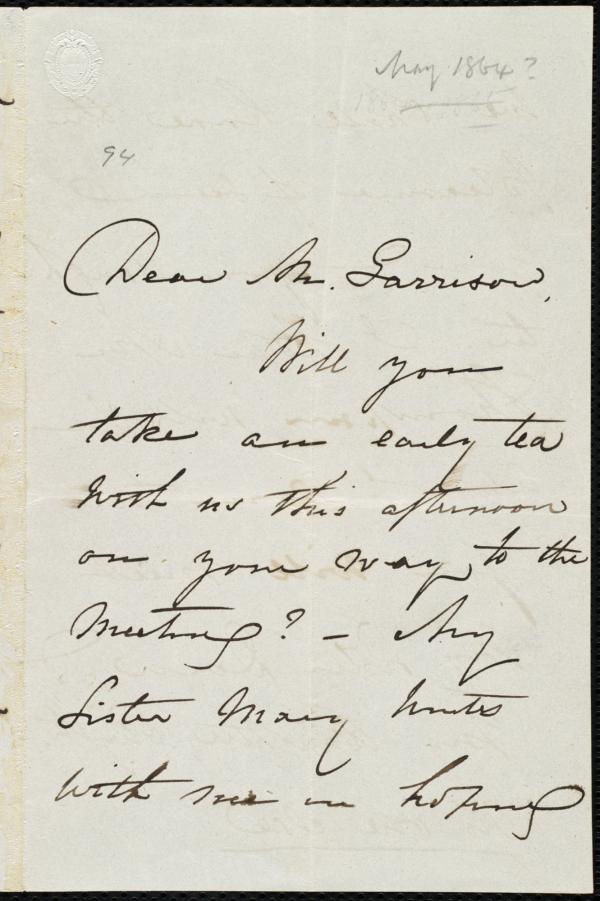 May 1864?
94
Dear Mr. Garrison,
Will you
take an early tea
with us this afternoon
on your way to the
Meeting? - My
Sister Mary unites
with me in hoping